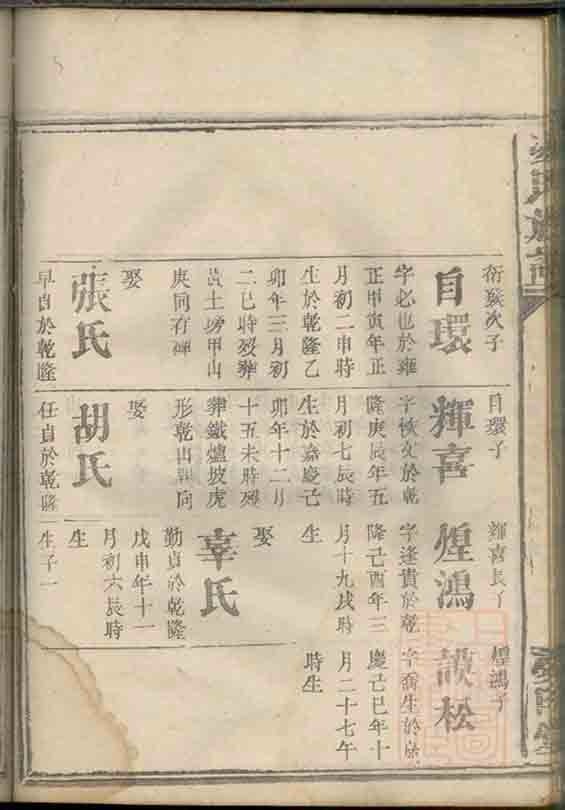 衍發次子
目環
字必也於雍
正甲寅年正
月初二申時
生於乾隆乙
卯年三月初
二巳時歿葬
黃土塝甲山
庚向有碑
娶
張氏
早自於乾隆
目環子
輝喜
字牧文於乾
隆庚辰年五
月初七辰時
生於嘉慶己
卯年十二月
十五未時歿
葬鐵爐坡虎
形乾山巽向
娶
胡氏
任貞於乾隆
輝喜長子
煌鴻
字逢貴於乾
隆己酉年三
月十九戌時
生
娶
辜氏
勤貞於乾隆
戊申年十一
月初六辰時
生
生子一
煌鴻子
松
字裔生於嘉
慶己巳年十
月二十七午
時生